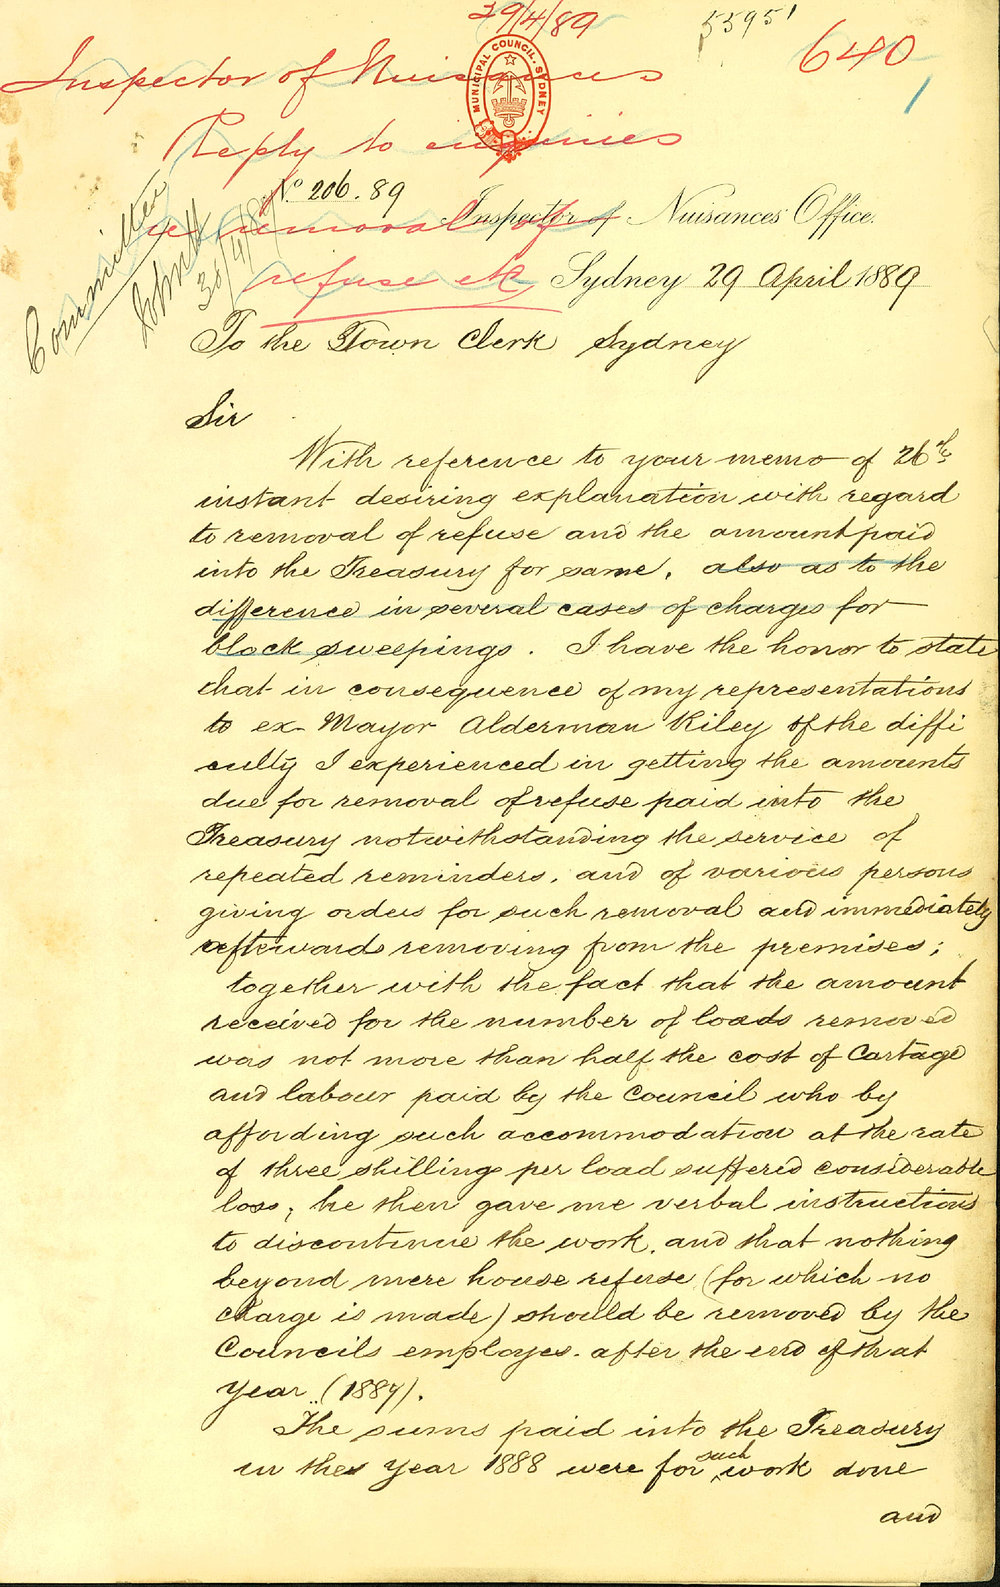 29/4/89
55951
640
1
Inspector of Nuisances
MUNICIPAL COUNCIL. SYDNEY
Reply to inquiries
No. 206.89
re removal of
refuse etc
Committee
30/4/89
Inspector of Nuisances Office.
Sydney 29 April 1889
To the Town Clerk Sydney
Sir
With reference to your memo of 26th
instant desiring explanation with regard
to removal of refuse and the amount paid
into the Treasury for same, also as to the
difference in several cases of charges for
block sweepings. I have the honor to state
that in consequence of my representations
to ex-Mayor Alderman Riley of the diffi
culty I experienced in getting the amounts
due for removal of refuse paid into the
Treasury notwithstanding the service of
repeated reminders, and of various persons
giving orders for such removal and immediately
afterwards removing from the premises;
together with the fact that the amount
received for the number of loads removed
was not more than half the cost of Cartage
and labour paid by the Council who by
affording such accommodation at the rate
of three shillings per load suffered considerable
loss; he then gave me verbal instructions
to discontinue the work, and that nothing
beyond mere house refuse (for which no
charge is made) should be removed by the
Councils employes. after the end of that
year (1887).
The sums paid into the Treasury
in the year 1888 were for such work done
and